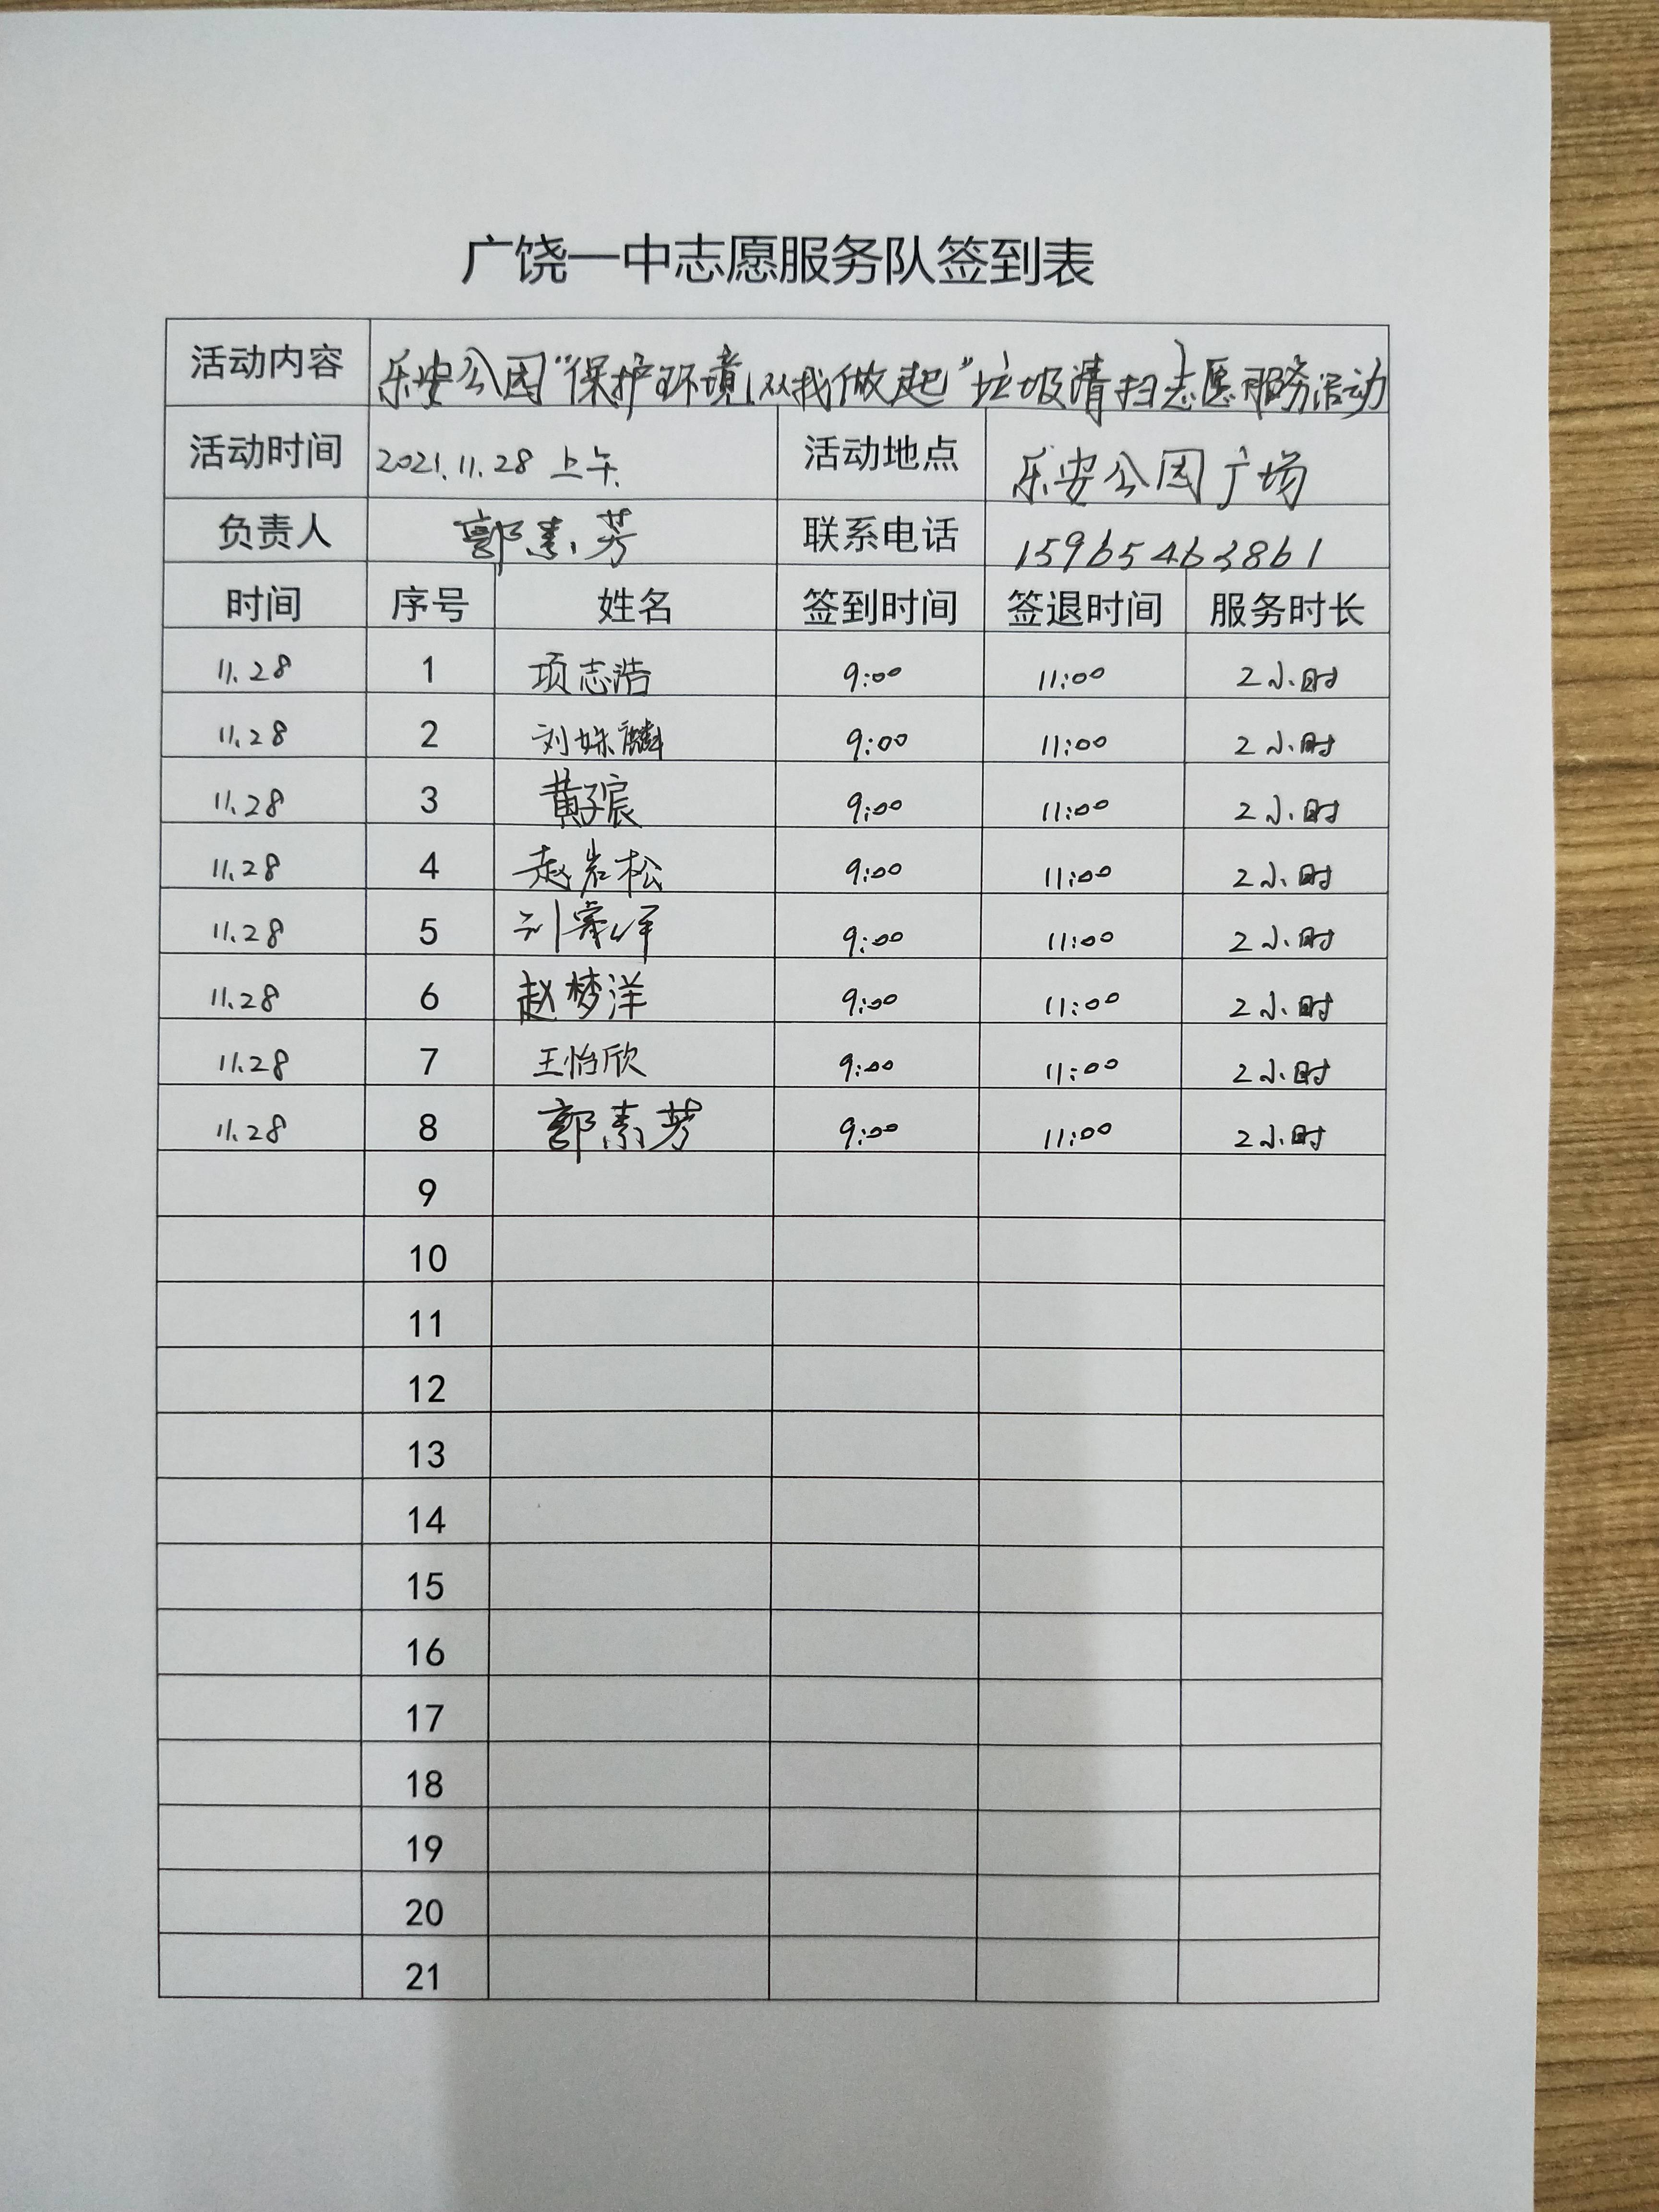 广饶一中志愿服务队签到表
活动内容 乐安公园“保护环境,从我做起”垃圾清扫志愿服务活动
活动时间 2021.11.28 上午 活动地点 乐安公园广场
负责人 郭素芳 联系电话 15965463861
时间 序号 姓名 签到时间 签退时间 服务时长
11.28 1 项志浩 9:00 11:00 2小时
11.28 2 刘姝麟 9:00 11:00 2小时
11.28 3 黄子宸 9:00 11:00 2小时
11.28 4 赵岩松 9:00 11:00 2小时
11.28 5 刘 9:00 11:00 2小时
11.28 6 赵梦洋 9:00 11:00 2小时
11.28 7 王怡欣 9:00 11:00 2小时
11.28 8 郭素芳 9:00 11:00 2小时
9
10
11
12
13
14
15
16
17
18
19
20
21